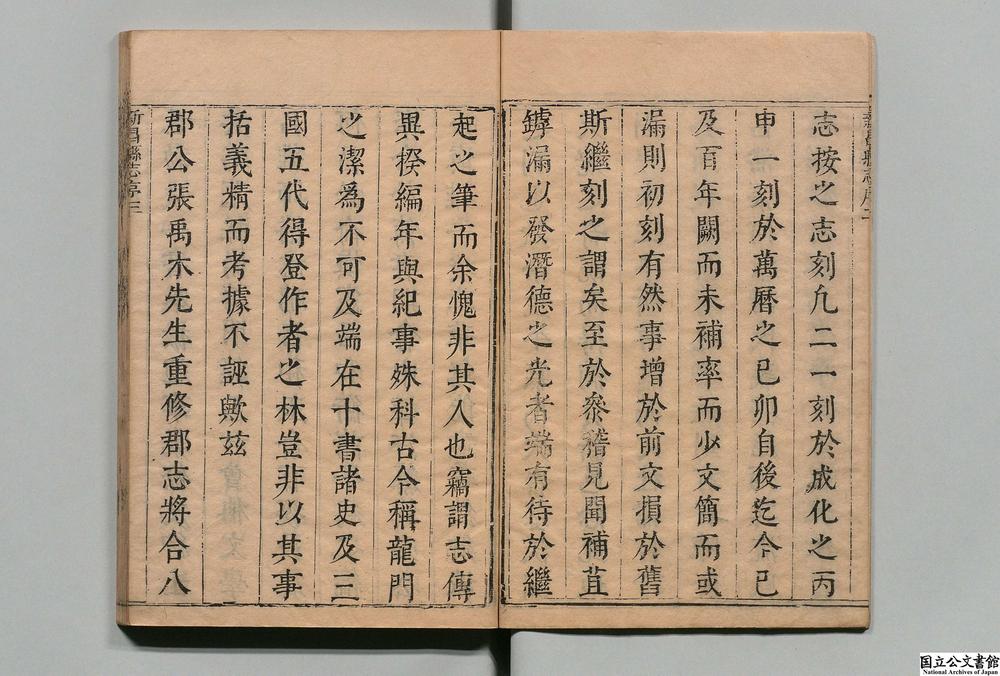 志按之志刻凢二一刻於成化之丙
申一刻於萬曆之己卯自後迄今已
及百年闕而未補率而少文簡而或
漏則初刻有然事增於前文損於舊
斯繼刻之謂矣至於叅稽見聞補苴
罅漏以發潛德之光者端有待於繼
起之筆而余愧非其人也竊謂志傳
異揆編年與紀事姝科古今稱龍門
之潔爲不可及端在十書諸史及三
國五代得登作者之林豈非以其事
括義精而考據不誣歟玆
郡公張禹木先生重修郡志將合八
新昌縣志序三
国立公文書館
National Archives of Japan